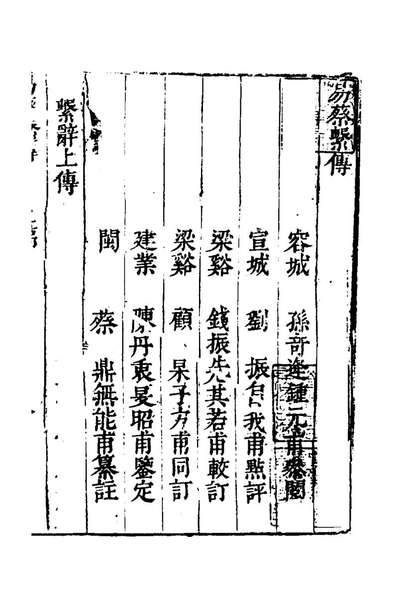 易蔡繫傳
容城 孫奇逢鍾元甫叅閱
宣城 劉 振 我甫點評
梁谿 錢振先其若甫較訂
梁谿 顧 杲子方甫同訂
建業 陳丹衷旻昭甫鑒定
閩 蔡 鼎無能甫纂註
繫辭上傳